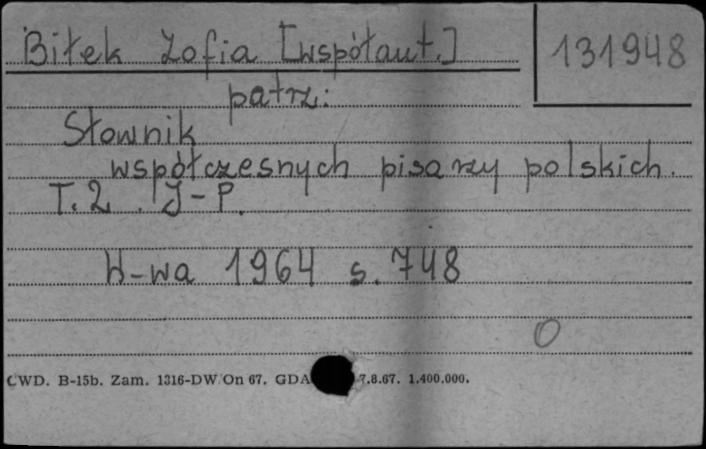 Biłek Zofia [współaut.]
131948
patrz:
Słownik
współczesnych pisarzy polskich.
T. 2. J-P.
W-wa 1964 s. 748
O
CWD. B-15b. Zam. 1316-DW/On 67. GDA 7.8.67. 1.400.000.